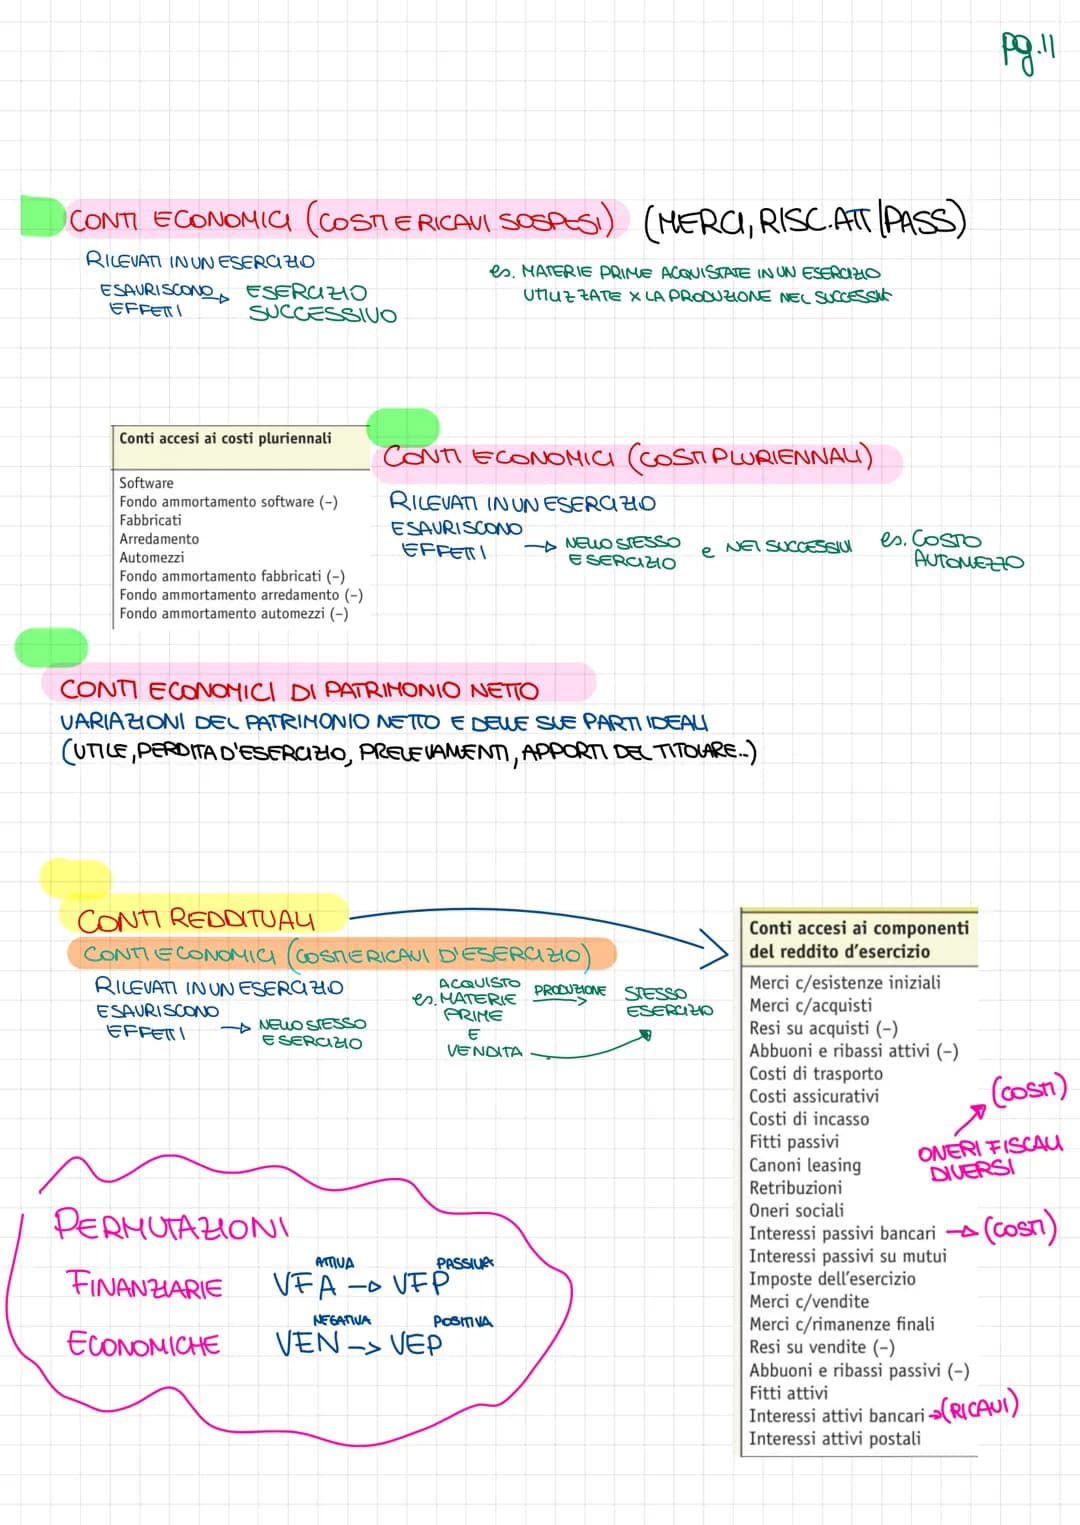 pg.11
CONTI ECONOMICI (COSTI E RICAVI SOSPESI) (MERCI, RISC.ATT|PASS)
RILEVATI IN UN ESERCIZIO
ESAURISCONO → ESERCIZIO
EFFETTI SUCCESSIVO
es. MATERIE PRIME ACQUISTATE IN UN ESERCIZIO
UTILIZZATE X LA PRODUZIONE NEL SUCCESSIVO
Conti accesi ai costi pluriennali
Software
Fondo ammortamento software (–)
Fabbricati
Arredamento
Automezzi
Fondo ammortamento fabbricati (–)
Fondo ammortamento arredamento (–)
Fondo ammortamento automezzi (–)
CONTI ECONOMICI (COSTI PLURIENNALI)
RILEVATI IN UN ESERCIZIO
ESAURISCONO
EFFETTI → NELLO STESSO e NEI SUCCESSIVI
ESERCIZIO
es. COSTO
AUTOMEZZO
CONTI ECONOMICI DI PATRIMONIO NETTO
VARIAZIONI DEL PATRIMONIO NETTO E DELLE SUE PARTI IDEALI
(UTILE, PERDITA D'ESERCIZIO, PRELEVAMENTI, APPORTI DEL TITOLARE..)
CONTI REDDITUALI
CONTI ECONOMICI (COSTI E RICAVI D'ESERCIZIO)
RILEVATI IN UN ESERCIZIO
ESAURISCONO
EFFETTI → NELLO STESSO
ESERCIZIO
ACQUISTO
es. MATERIE
PRIME
E
VENDITA
PRODUZIONE
STESSO
ESERCIZIO
Conti accesi ai componenti
del reddito d'esercizio
Merci c/esistenze iniziali
Merci c/acquisti
Resi su acquisti (–)
Abbuoni e ribassi attivi (–)
Costi di trasporto
Costi assicurativi
Costi di incasso
Fitti passivi
Canoni leasing
Retribuzioni
Oneri sociali
Interessi passivi bancari → (COSTI)
Interessi passivi su mutui
Imposte dell'esercizio
Merci c/vendite
Merci c/rimanenze finali
Resi su vendite (–)
Abbuoni e ribassi passivi (–)
Fitti attivi
Interessi attivi bancari → (RICAVI)
Interessi attivi postali
(COSTI)
ONERI FISCALI
DIVERSI
PERMUTAZIONI
ATTIVA PASSIVA
FINANZIARIE VFA → VFP
NEGATIVA POSITIVA
ECONOMICHE VEN –> VEP